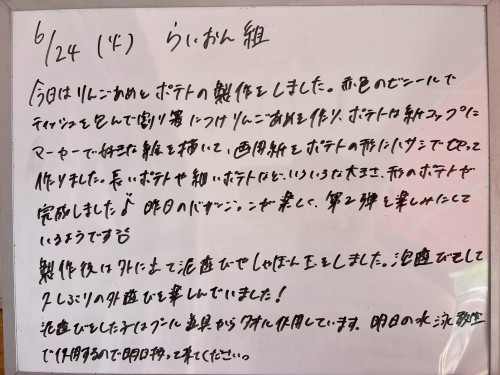 6/24 (火) らいおん組
今日はりんごあめとポテトの製作をしました。赤色のビニールで
ティッシュを包んで割り箸につけりんごあめを作り、ポテトは紙コップに
マーカーで好きな絵を描いて、画用紙をポテトの形にハサミで切って
作りました。長いポテトや細いポテトなど、いろいろな大きさ、形のポテトが
完成しました♪ 昨日の が楽しく、第2弾を楽しみにして
いるようです
製作後は外に出て泥遊びやしゃぼん玉をしました。泥遊びをして
久しぶりの外遊びを楽しんでいました!
泥遊びをした子はプール道具からタオル使用しています。明日の水泳教室
で使用するので明日持って来てください。